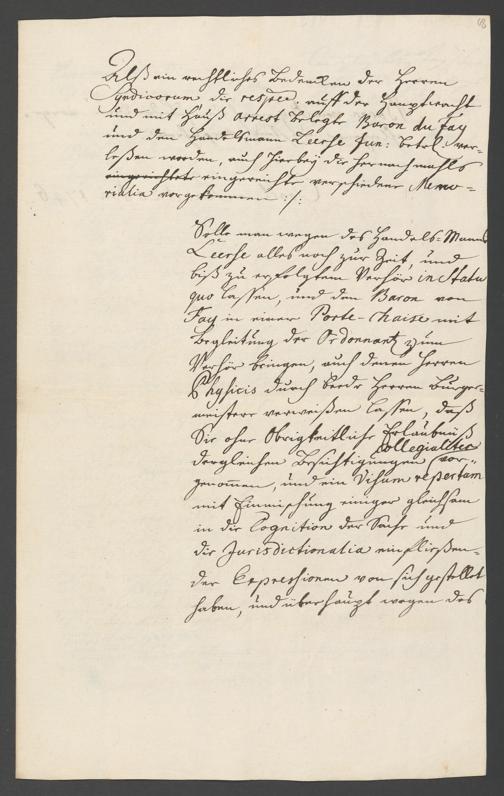 Alß ein rechtliches Bedencken der Herren
Syndicorum die respec. auff der Hauptwacht
und mit Hauß arrest belegte Baron du Fay
und den Handelsmann Leerse Jun: betr: ver-
leßen worden, auch hierbey die hernachmahls
eingerichtete eingereichte verschiedene Memo-
rialia vorgekommen :/:
Solle man wegen des Handels-Manns
Leerse alles noch zur Zeit, und
biß zu erfolgtem Verhör in Statu
quo lassen, und den Baron von
Fay in einer Porte-chaise mit
Begleitung der Ordonnantz zum
Verhör bringen, auch denen Herren
Physicis durch beede Herren Burger-
meistere verweißen lassen, daß
Sie ohne Obrigkeitliche Erlaubnüß
collegialiter
dergleichen Besichtigungen vor-
genommen, und ein Visum repertum
mit Einmischung einiger gleichsam
in die Cognition der Sache und
die Jurisdictionalia einfließen-
der Expressionen von sich gestellet
haben, und überhaupt wegen des